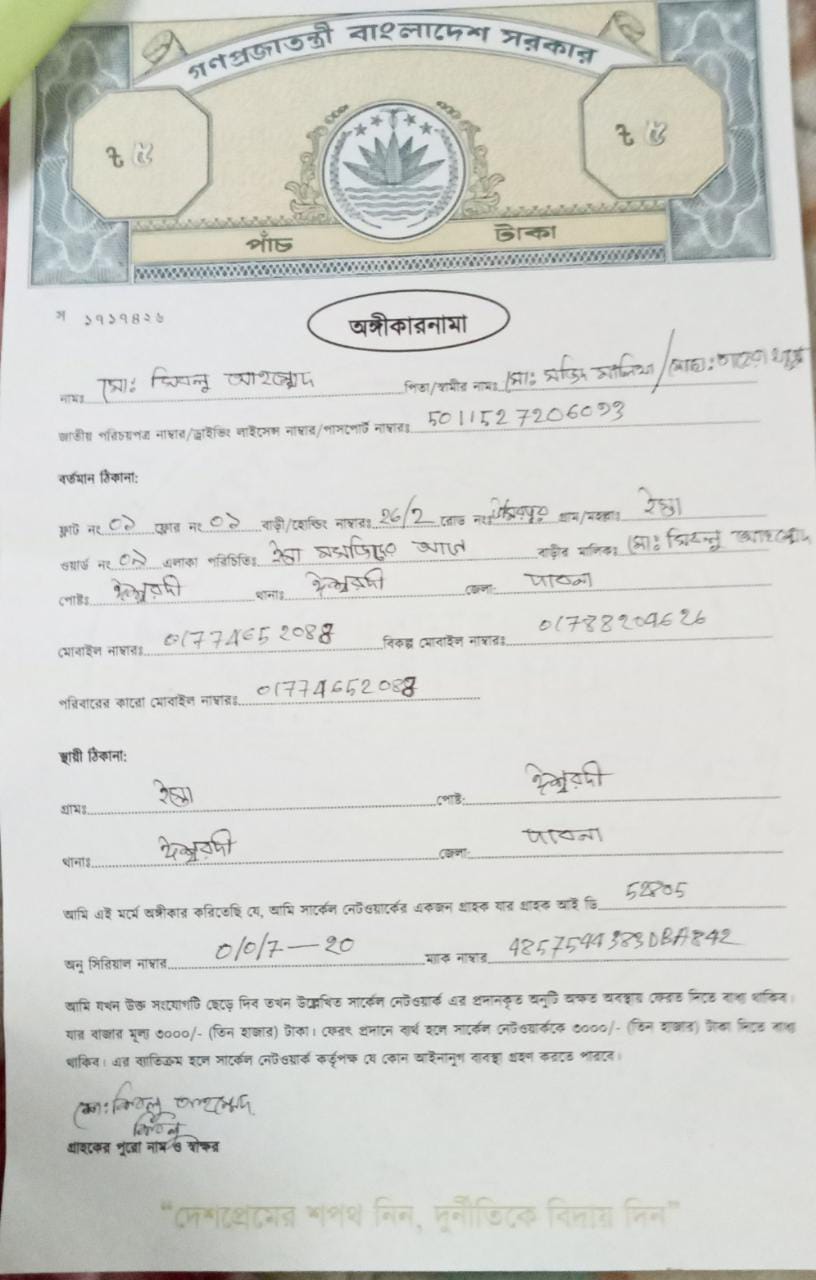 গণপ্রজাতন্ত্রী বাংলাদেশ সরকার
৳ ৫ ৳ ৫
পাঁচ টাকা
অঙ্গীকারনামা
নামঃ মোঃ আহম্মেদ পিতা/স্বামীর নামঃ মোঃ
জাতীয় পরিচয়পত্র নাম্বার/ড্রাইভিং লাইসেন্স নাম্বার/পাসপোর্ট নাম্বারঃ 5011527206093
বর্তমান ঠিকানা:
ফ্ল্যাট নং ০৯ ফ্লোর নং ০৯ বাড়ী/হোল্ডিং নাম্বারঃ 26/2 রোড নং গ্রাম/মহল্লাঃ
ওয়ার্ড নং ০৯ এলাকা পরিচিতিঃ বাড়ীর মালিকঃ মোঃ
পোষ্টঃ ঈশ্বরদী থানাঃ ঈশ্বরদী জেলা: পাবনা
মোবাইল নাম্বারঃ 01774652088 বিকল্প মোবাইল নাম্বারঃ
পরিবারের কারো মোবাইল নাম্বারঃ 01774652088
স্থায়ী ঠিকানা:
গ্রামঃ পোষ্ট: ঈশ্বরদী
থানাঃ ঈশ্বরদী জেলা: পাবনা
আমি এই মর্মে অঙ্গীকার করিতেছি যে, আমি সার্কেল নেটওয়ার্কের একজন গ্রাহক যার গ্রাহক আই ডি 52805
অনু সিরিয়াল নাম্বার 0/0/7—20 ম্যাক নাম্বার
আমি যখন উক্ত সংযোগটি ছেড়ে দিব তখন উল্লেখিত সার্কেল নেটওয়ার্ক এর প্রদানকৃত অনুটি অক্ষত অবস্থায় ফেরত দিতে বাধ্য থাকিব।
যার বাজার মূল্য ৩০০০/- (তিন হাজার) টাকা। ফেরৎ প্রদানে ব্যর্থ হলে সার্কেল নেটওয়ার্ককে ৩০০০/- (তিন হাজার) টাকা দিতে বাধ্য
থাকিব। এর ব্যতিক্রম হলে সার্কেল নেটওয়ার্ক কর্তৃপক্ষ যে কোন আইনানুগ ব্যবস্থা গ্রহন করতে পারবে।
গ্রাহকের পুরো নাম ও স্বাক্ষর
“দেশপ্রেমের শপথ নিন, দুর্নীতিকে বিদায় দিন”